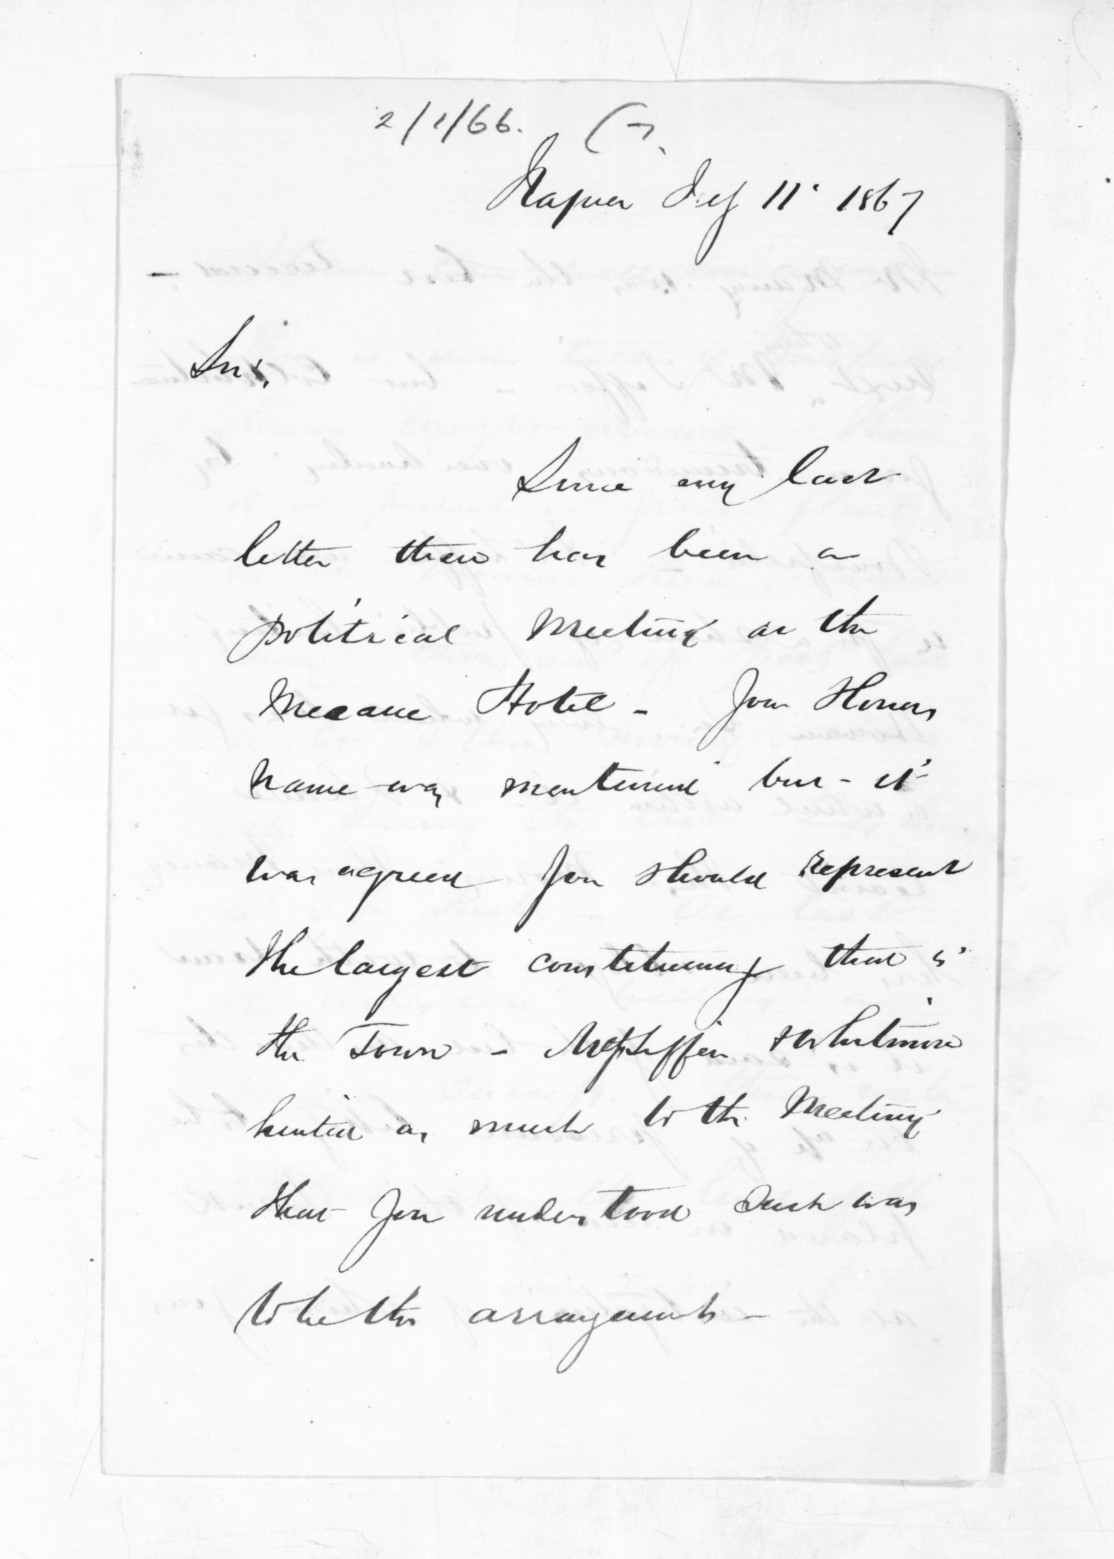 2/1/66.
Napier July 11 1867
Sir,
Since my last
letter there has been a
political Meeting at the
Meeanee Hotel - Your Honors
name was mentioned but - it
was agreed You should represent
the largest constituency that is
the Town - Tiffen & Whitmore
hinted as much to the Meeting
that You understood such was
to be the arrangements -